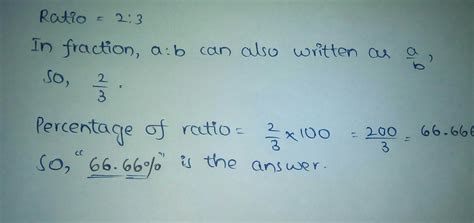 Ratio = 2:3
In fraction, a:b can also written as a/b,
so, 2/3.
Percentage of ratio = 2/3 × 100 = 200/3 = 66.666
So, "66.66%" is the answer.